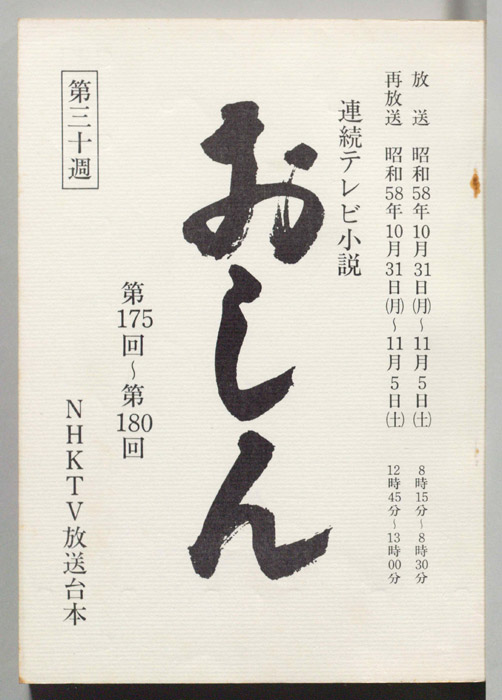 放送 昭和58年10月31日(月)~11月5日(土) 8時15分~8時30分
再放送 昭和58年10月31日(月)~11月5日(土) 12時45分~13時00分
連続テレビ小説
おしん
第175回~第180回
NHKTV放送台本
第三十週